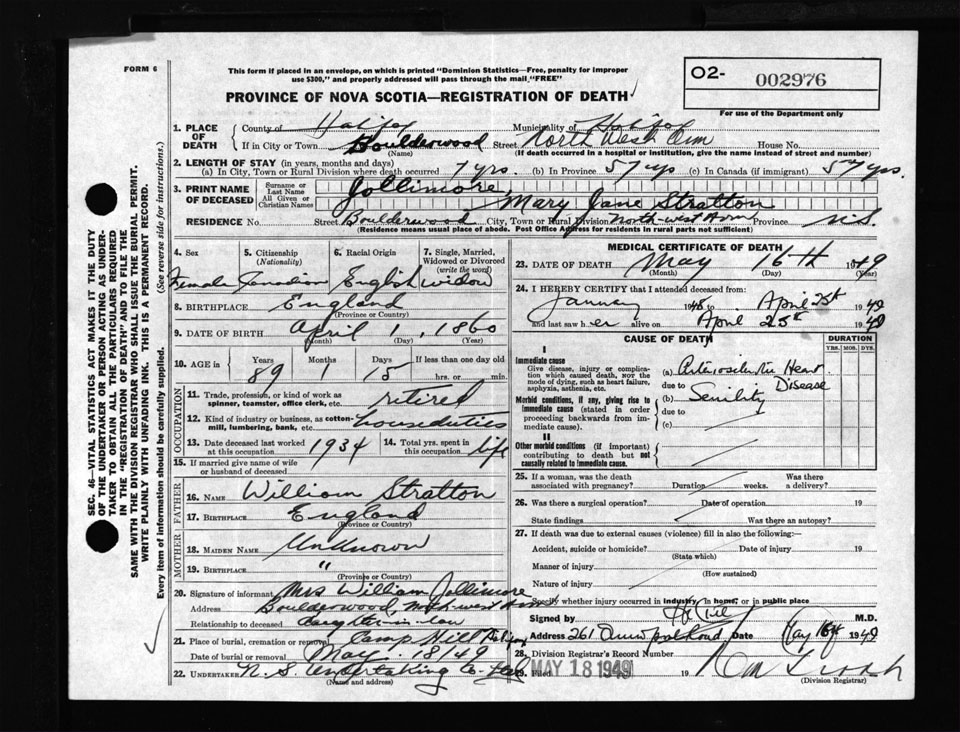 FORM 6
This form if placed in an envelope, on which is printed "Dominion Statistics—Free, penalty for improper use $300," and properly addressed will pass through the mail "FREE"
O2- 002976
PROVINCE OF NOVA SCOTIA—REGISTRATION OF DEATH
For use of the Department only
1. PLACE OF DEATH County of Halifax Municipality of Halifax
If in City or Town Boulderwood Street North West Arm House No.
(Name) (If death occurred in a hospital or institution, give the name instead of street and number)
2. LENGTH OF STAY (in years, months and days)
(a) In City, Town or Rural Division where death occurred 7 yrs. (b) In Province 57 yrs (c) In Canada (if immigrant) 57 yrs.
3. PRINT NAME OF DECEASED Surname or Last Name Jollimore
All Given or Christian Names Mary Jane Stratton
RESIDENCE No. Street Boulderwood City, Town or Rural Division North-west Arm Province N.S.
(Residence means usual place of abode. Post Office Address for residents in rural parts not sufficient)
4. Sex 5. Citizenship (Nationality) 6. Racial Origin 7. Single, Married, Widowed or Divorced (write the word)
Female Canadian English widow
8. BIRTHPLACE England
(Province or Country)
9. DATE OF BIRTH April 1, 1860
(Month) (Day) (Year)
10. AGE in Years Months Days If less than one day old
89 1 15 hrs. or min.
OCCUPATION
11. Trade, profession, or kind of work as spinner, teamster, office clerk, etc. retired
12. Kind of industry or business, as cotton-mill, lumbering, bank, etc. houseduties
13. Date deceased last worked at this occupation 1934 14. Total yrs. spent in this occupation life
15. If married give name of wife or husband of deceased
FATHER
16. NAME William Stratton
17. BIRTHPLACE England
(Province or Country)
MOTHER
18. MAIDEN NAME Unknown
19. BIRTHPLACE "
(Province or Country)
20. Signature of informant Mrs William Jollimore
Address Boulderwood, North-west Arm
Relationship to deceased daughter-in-law
21. Place of burial, cremation or removal Camp Hill Halifax
Date of burial or removal May. 18/49
22. UNDERTAKER N. S. Undertaking Co.
(Name and address)
MEDICAL CERTIFICATE OF DEATH
23. DATE OF DEATH May 16th 1949
(Month) (Day) (Year)
24. I HEREBY CERTIFY that I attended deceased from:
January 1948 to April 25th 1949
and last saw her alive on April 25th 1949
CAUSE OF DEATH DURATION
YRS. MOS. DYS.
I
Immediate cause
Give disease, injury or complication which caused death, NOT the mode of dying, such as heart failure, asphyxia, asthenia, etc.
(a) Arteriosclerotic Heart Disease
due to
Morbid conditions, if any, giving rise to immediate cause (stated in order proceeding backwards from immediate cause).
(b) Senility
due to
(c)
II
Other morbid conditions (if important) contributing to death but not causally related to immediate cause.
25. If a woman, was the death associated with pregnancy? Duration weeks. Was there a delivery?
26. Was there a surgical operation? Date of operation 19
State findings Was there an autopsy?
27. If death was due to external causes (violence) fill in also the following:—
Accident, suicide or homicide? Date of injury 19
(State which)
Manner of injury
(How sustained)
Nature of injury
Specify whether injury occurred in industry, in home, or in public place
Signed by M.D.
Address 261 Date May 16th 1949
28. Division Registrar's Record Number
29. Filed MAY 18 1949 19
(Division Registrar)
SEC. 46—VITAL STATISTICS ACT MAKES IT THE DUTY OF THE UNDERTAKER OR PERSON ACTING AS UNDERTAKER TO OBTAIN ALL THE PARTICULARS REQUIRED IN THE "REGISTRATION OF DEATH" AND TO FILE THE SAME WITH THE DIVISION REGISTRAR WHO SHALL ISSUE THE BURIAL PERMIT.
WRITE PLAINLY WITH UNFADING INK. THIS IS A PERMANENT RECORD.
Every item of information should be carefully supplied. (See reverse side for instructions.)